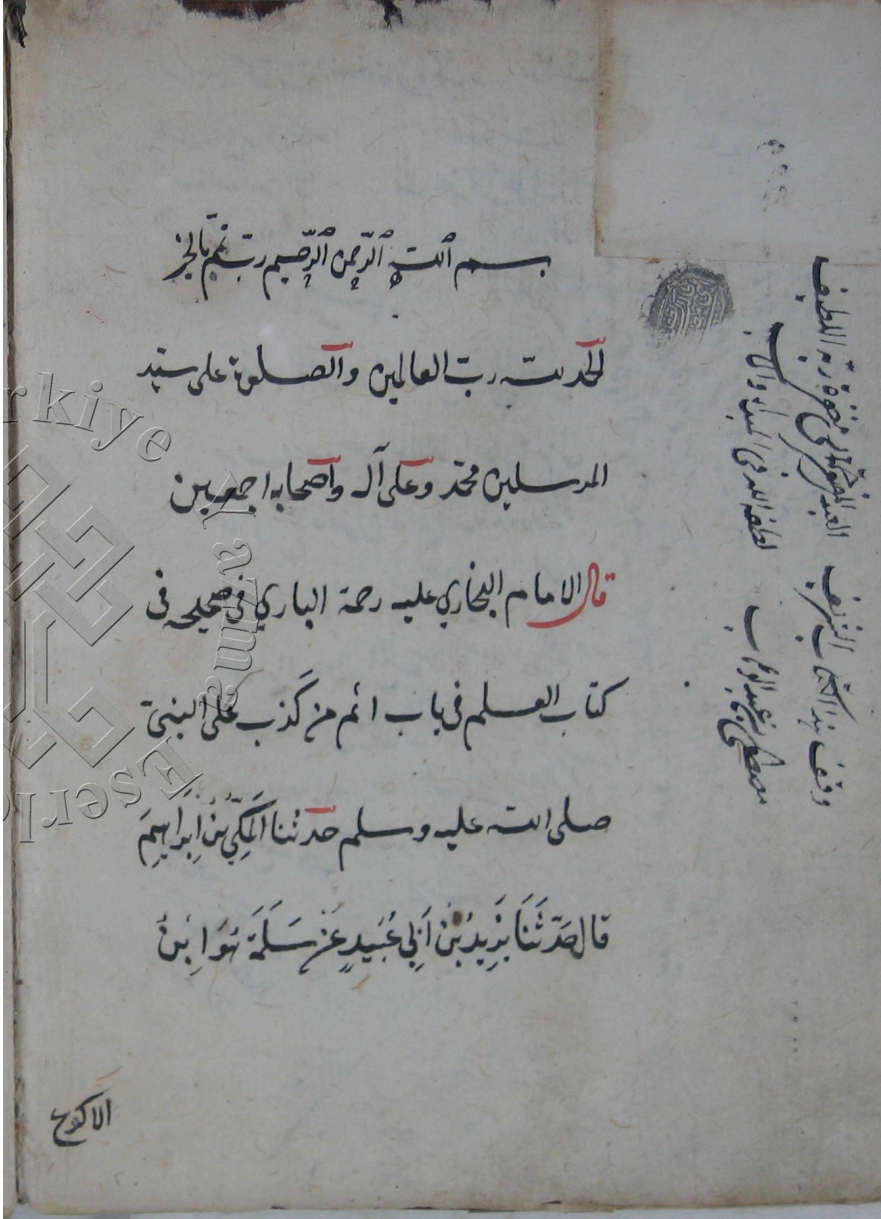 بسم الله الرحمن الرحيم رب تمم بالخير
الحمد لله رب العالمين والصلوة على سيد
المرسلين محمد وعلى آله واصحابه اجمعين
قال الامام البخاري عليه رحمة الباري في صحيحه في
كتاب العلم في باب اثم من كَذب على النبيّ
صلى الله عليه وسلم حدثنا المَكِّيُّ بْنُ اِبْرَاهِيمَ
قال حَدَّثَنَا يَزِيدُ بْنُ اَبِي عُبَيْدٍ عَنْ سَلَمَةَ هُوَ ابْنُ
الاكوع
وقف هذا الكتاب الشريف العبد الى ربه اللطيف
مصطفى بن عبد الوهاب لطفه الله في
Türkiye Yazma Eserler